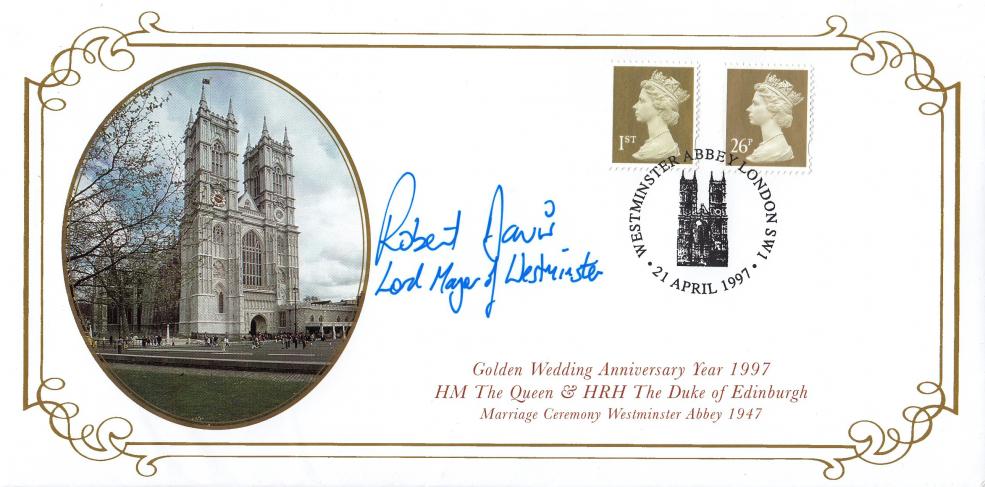 1ST
26P
WESTMINSTER ABBEY LONDON SW1
• 21 APRIL 1997 •
Robert Davis
Lord Mayor of Westminster
Golden Wedding Anniversary Year 1997
HM The Queen & HRH The Duke of Edinburgh
Marriage Ceremony Westminster Abbey 1947